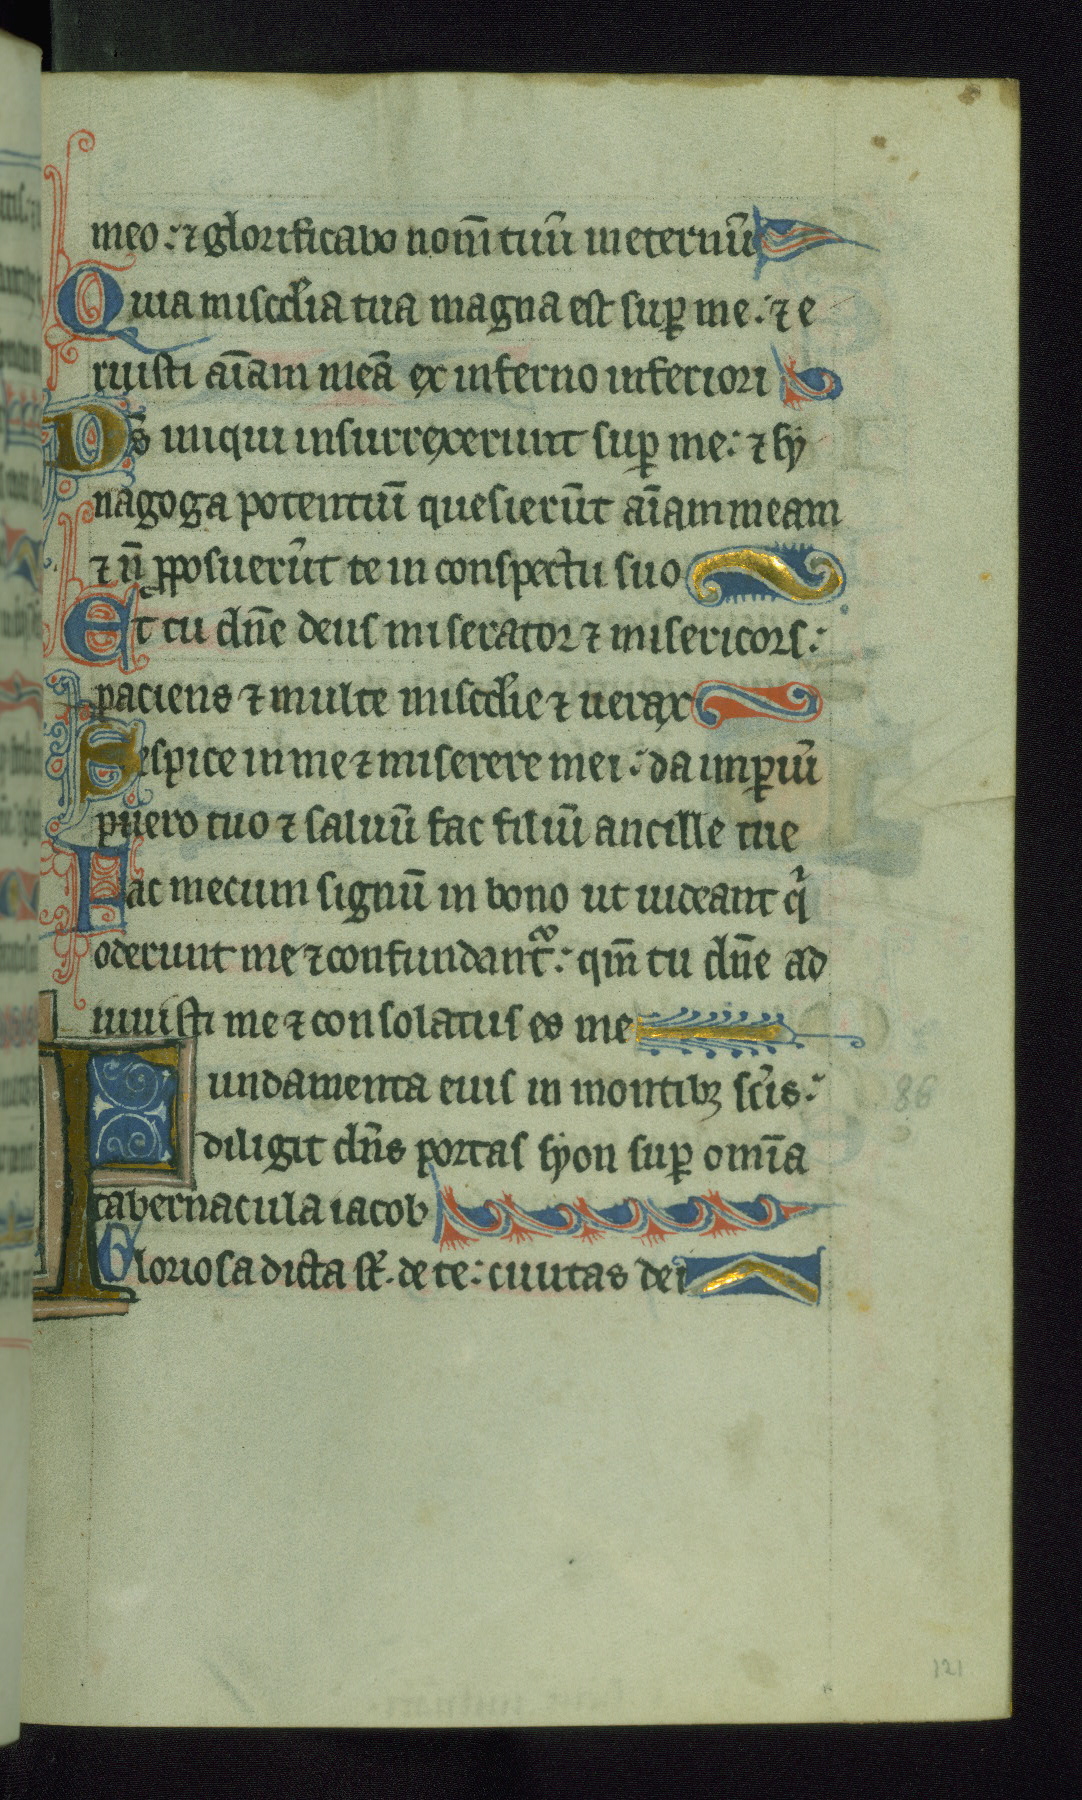 meo: ⁊ glorificabo nom̅ tuu̅ in eternu̅
Quia misc̅dia tua magna est sup̲ me: ⁊ e
ruisti ai̅am mea̅ ex inferno inferiori
Ds̅ iniqui insurrexerunt sup̲ me: ⁊ sy
nagoga potentiu̅ quesieru̅t ai̅am meam
⁊ n̅ p̲posueru̅t te in conspectu suo
Et tu dn̅e deus miserator ⁊ misericors:
paciens ⁊ multe misc̅die ⁊ uerax
Respice in me ⁊ miserere mei: da imp̲iu̅
puero tuo ⁊ saluu̅ fac filiu̅ ancille tue
Fac mecum signu̅ in bono ut uideant qi̅
oderunt me ⁊ confundant᷑: qm̅ tu dn̅e ad
iuuisti me ⁊ consolatus es me
Fundamenta eius in montibꝫ sc̅is:
diligit dn̅s portas syon sup̲ omi̅a
tabernacula iacob
Gloriosa dicta st̅. de te: ciuitas dei
86
121